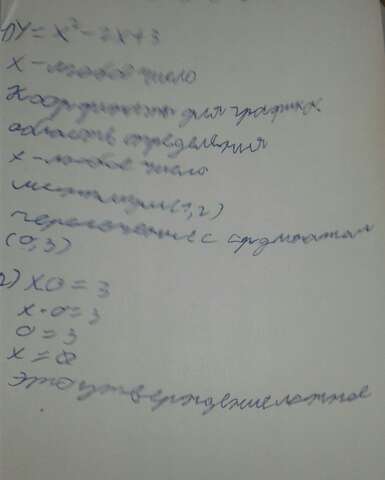 1) У = x² - 2x + 3
x - любое число
Координаты для графика
область определения
x - любое число
минимум (1, 2)
пересечение с ординатам
(0, 3)
2) x0 = 3
x · 0 = 3
0 = 3
x = ∅
Это утверждение ложное